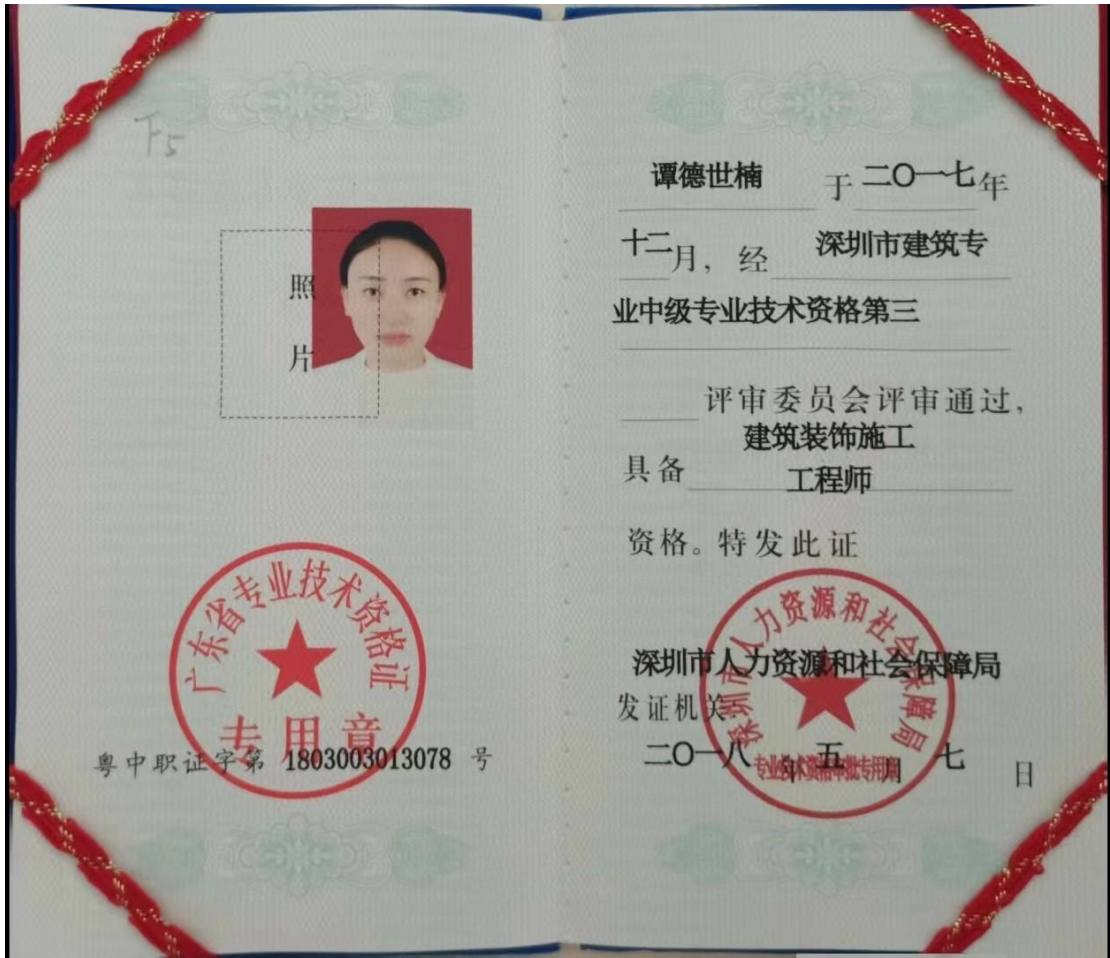 下5
照
片
广东省专业技术资格证
专用章
粤中职证字第 1803003013078 号
谭德世楠 于 二〇一七 年
十二 月，经 深圳市建筑专
业中级专业技术资格第三
评审委员会评审通过，
建筑装饰施工
具备 工程师
资格。特发此证
深圳市人力资源和社会保障局
深圳市人力资源和社会保障局
发证机关：
二〇一八 年 五 月 七 日